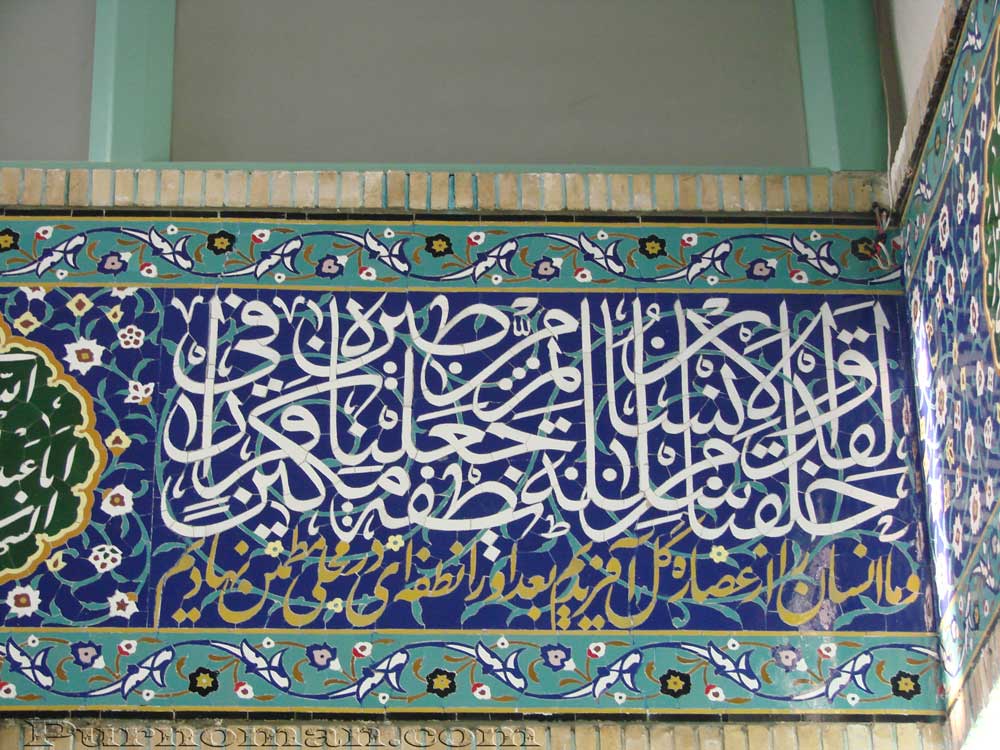 لقد خلقنا الانسان من سلالة من طين ثم جعلناه نطفة في قرار مكين
و ما انسان را از عصاره گل آفریدیم بعد او را نطفه ای در محلی مطمئن نهادیم
Purnoman.com